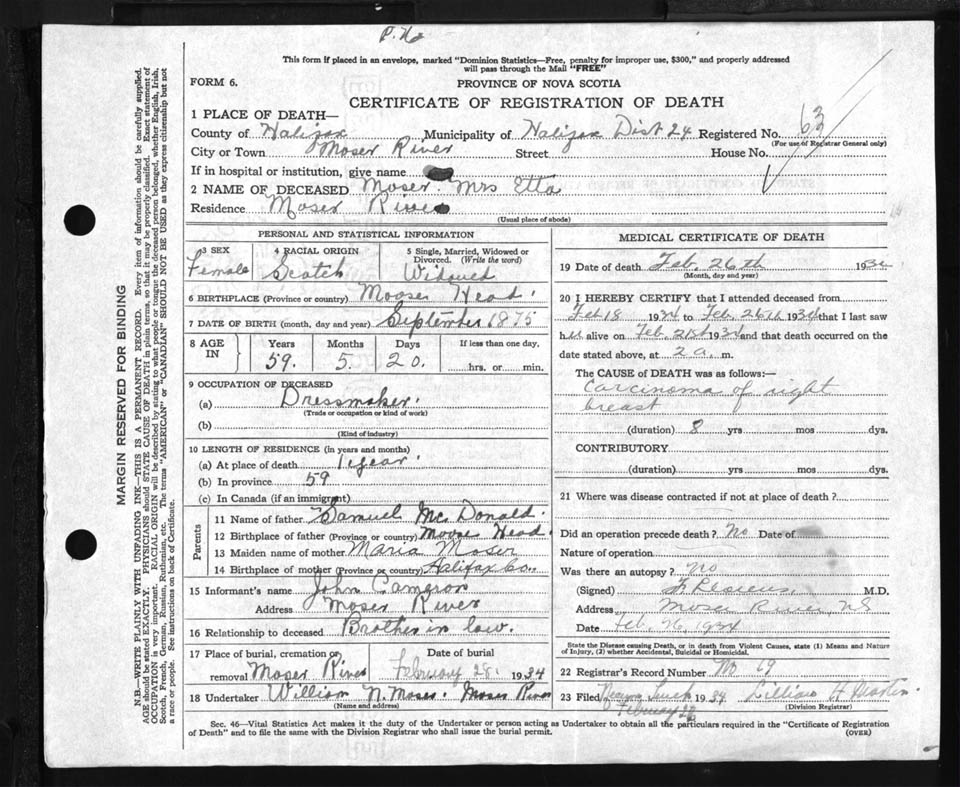 This form if placed in an envelope, marked "Dominion Statistics—Free, penalty for improper use, $300," and properly addressed
will pass through the Mail "FREE"
FORM 6.
PROVINCE OF NOVA SCOTIA
CERTIFICATE OF REGISTRATION OF DEATH
1 PLACE OF DEATH—
County of Halifax Municipality of Halifax Dist 24 Registered No. 63
(For use of Registrar General only)
City or Town Moser River Street House No.
If in hospital or institution, give name
2 NAME OF DECEASED Moser. Mrs Etta
Residence Moser River
(Usual place of abode)
PERSONAL AND STATISTICAL INFORMATION
3 SEX 4 RACIAL ORIGIN 5 Single, Married, Widowed or Divorced. (Write the word)
Female Scotch Widowed
6 BIRTHPLACE (Province or country) Mooser Head.
7 DATE OF BIRTH (month, day and year) September 1875
8 AGE IN Years Months Days If less than one day.
59. 5. 20. hrs. or min.
9 OCCUPATION OF DECEASED
(a) Dressmaker.
(Trade or occupation or kind of work)
(b)
(Kind of industry)
10 LENGTH OF RESIDENCE (in years and months)
(a) At place of death 1 year.
(b) In province 59
(c) In Canada (if an immigrant)
Parents
11 Name of father Samuel Mc Donald.
12 Birthplace of father (Province or country) Moose Head.
13 Maiden name of mother Maria Moser
14 Birthplace of mother (Province or country) Halifax Co..
15 Informant's name John Cameron
Address Moser River
16 Relationship to deceased Brother in law.
17 Place of burial, cremation or removal Moser River Date of burial February 28. 1934
18 Undertaker William N. Moser. Moser River
(Name and address)
MEDICAL CERTIFICATE OF DEATH
19 Date of death Feb. 26th 1934
(Month, day and year)
20 I HEREBY CERTIFY that I attended deceased from
Feb 18 1934 to Feb. 26th 1934 that I last saw
her alive on Feb. 21st 1934 and that death occurred on the
date stated above, at 2 a. m.
The CAUSE of DEATH was as follows:—
Carcinoma of right
breast
(duration) 8 yrs mos dys.
CONTRIBUTORY
(duration) yrs mos dys.
21 Where was disease contracted if not at place of death ?
Did an operation precede death ? No Date of
Nature of operation
Was there an autopsy ? No
(Signed) M.D.
Address Moser River, NS
Date Feb. 26, 1934
State the Disease causing Death, or in death from Violent Causes, state (1) Means and Nature of Injury, (2) whether Accidental, Suicidal or Homicidal.
22 Registrar's Record Number No 69
23 Filed February 28 1934 Lillian H
(Division Registrar)
Sec. 46—Vital Statistics Act makes it the duty of the Undertaker or person acting as Undertaker to obtain all the particulars required in the "Certificate of Registration
of Death" and to file the same with the Division Registrar who shall issue the burial permit.
(OVER)
MARGIN RESERVED FOR BINDING
N.B.—WRITE PLAINLY WITH UNFADING INK—THIS IS A PERMANENT RECORD. Every item of information should be carefully supplied.
AGE should be stated EXACTLY. PHYSICIANS should STATE CAUSE OF DEATH in plain terms, so that it may be properly classified. Exact statement of
OCCUPATION is very important. RACIAL ORIGIN will be described by stating to what people or tongue the deceased person belonged, whether English, Irish,
Scotch, French, German, Russian, Ruthenian, etc. The terms "AMERICAN" or "CANADIAN" SHOULD NOT BE USED as they express citizenship but not
a race or people. See instructions on back of Certificate.